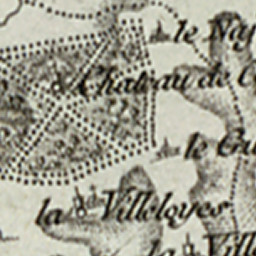 le
Chateau de
le
la Villeloyes
la Ville